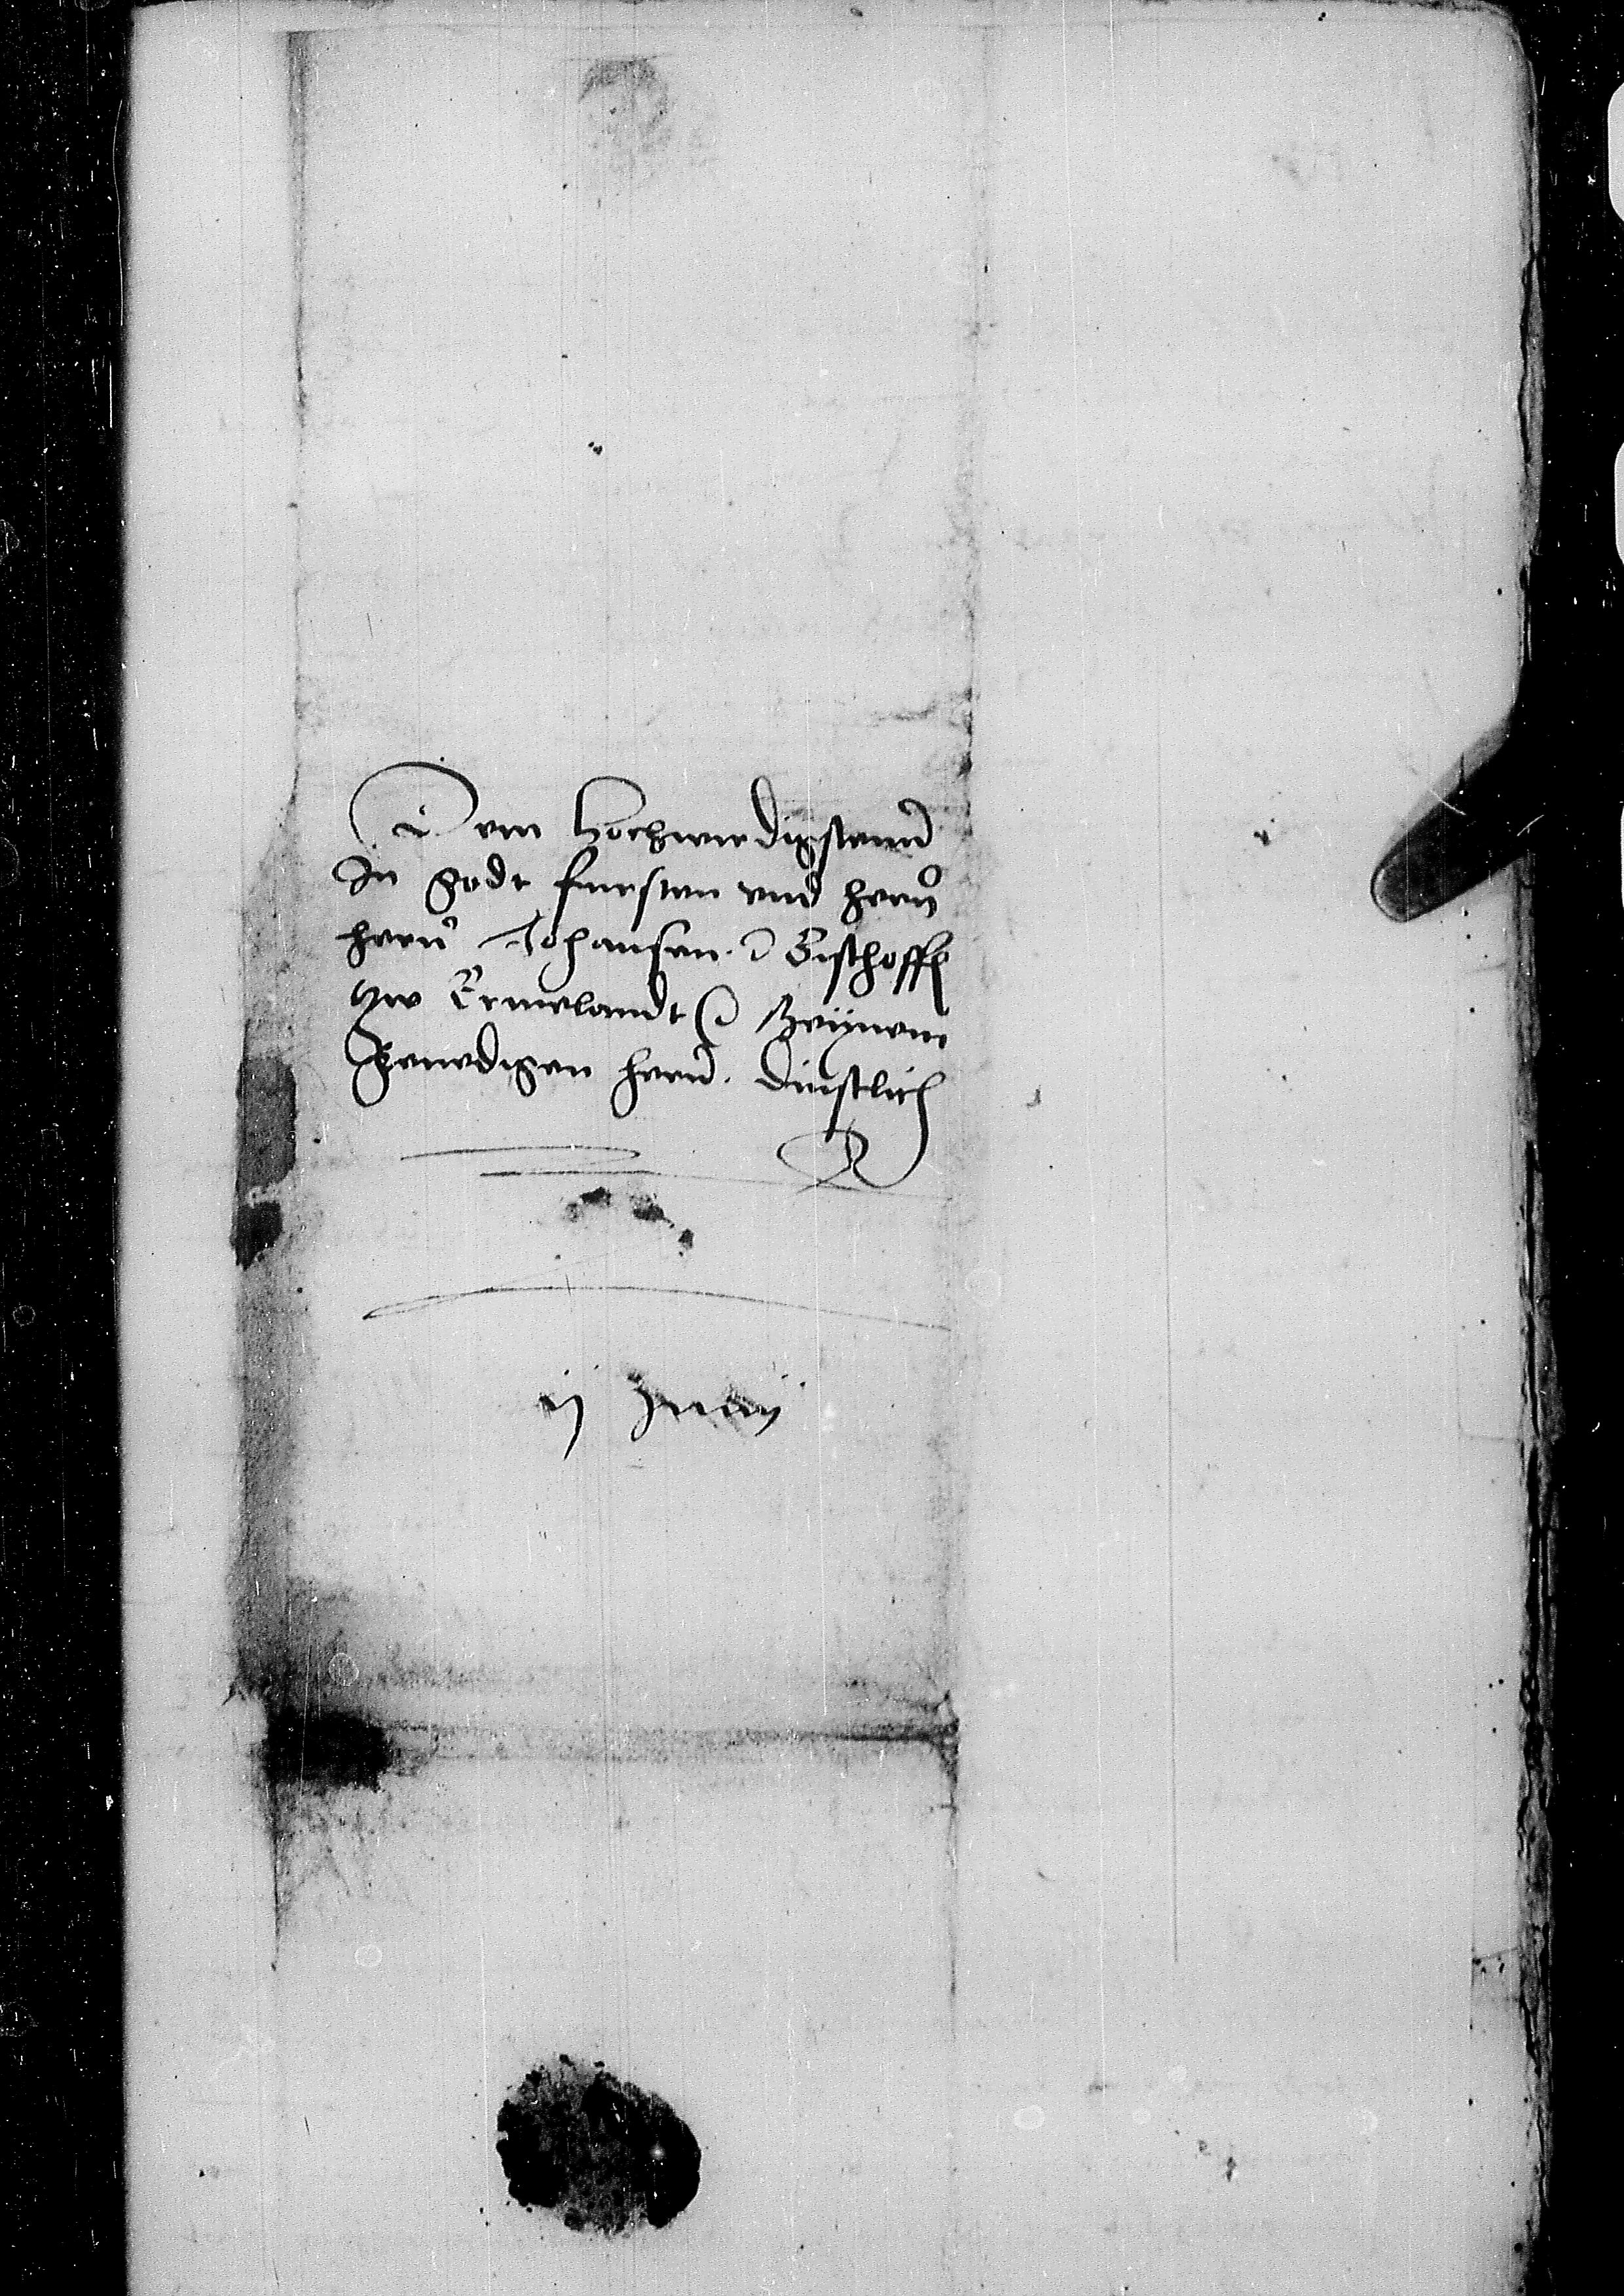 Dem hochwirdigstenn
In godt fursten vnd hern
hern Johansen Bischoffh
zw Ermelandt Meynem
genedigen hern. dinstlich
ij Junij